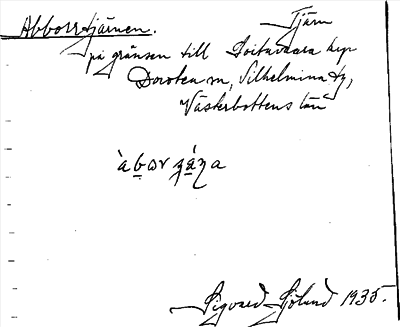 Abborrtjärnen. Tjärn
på gränsen till Loitsvaara byn
Dorotea sn, Vilhelmina tg,
Västerbottens län
Sigvard Sjölund 1935.